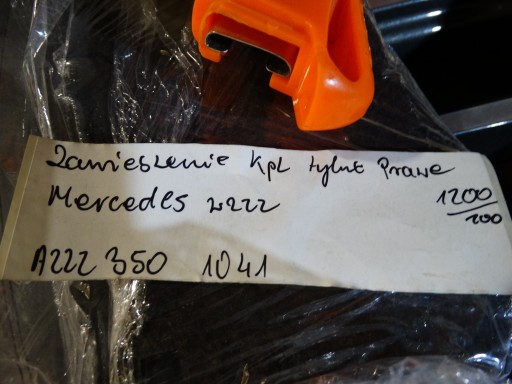 Zawieszenie kpl tylne Prawe
Mercedes w222
1200/200
A222 350 1041